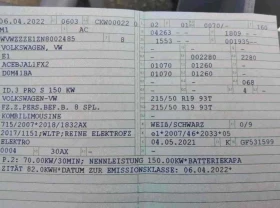 06.04.2022 0603 CKW00022 0
M1 AC
WVWZZZE1ZN8002485 8
VOLKSWAGEN, VW
E1
ACEBJA1FX2
D0M4IBA
ID.3 PRO S 150 KW
VOLKSWAGEN-VW
FZ.Z.PERS.BEF.B. 8 SPL.
KOMBILIMOUSINE
715/2007*2018/1832AX
2017/1151;WLTP;REINE ELEKTROFZ
ELEKTRO
0004 30 AX —
02 01 0070/-
04263 — 1809 —
1553 — 001935 —
— 002280 2280
01070 01260
01070 01260
— 068
— 4
— —
215/50 R19 93T
215/50 R19 93T
WEIß/SCHWARZ 0/9
e1*2007/46*2033*05
04.05.2021 K GF531599
P.2: 70.00KW/30MIN; NENNLEISTUNG 150.00KW*BATTERIEKAPA
ZITÄT 82.0KWH*DATUM ZUR EMISSIONSKLASSE: 06.04.2022*